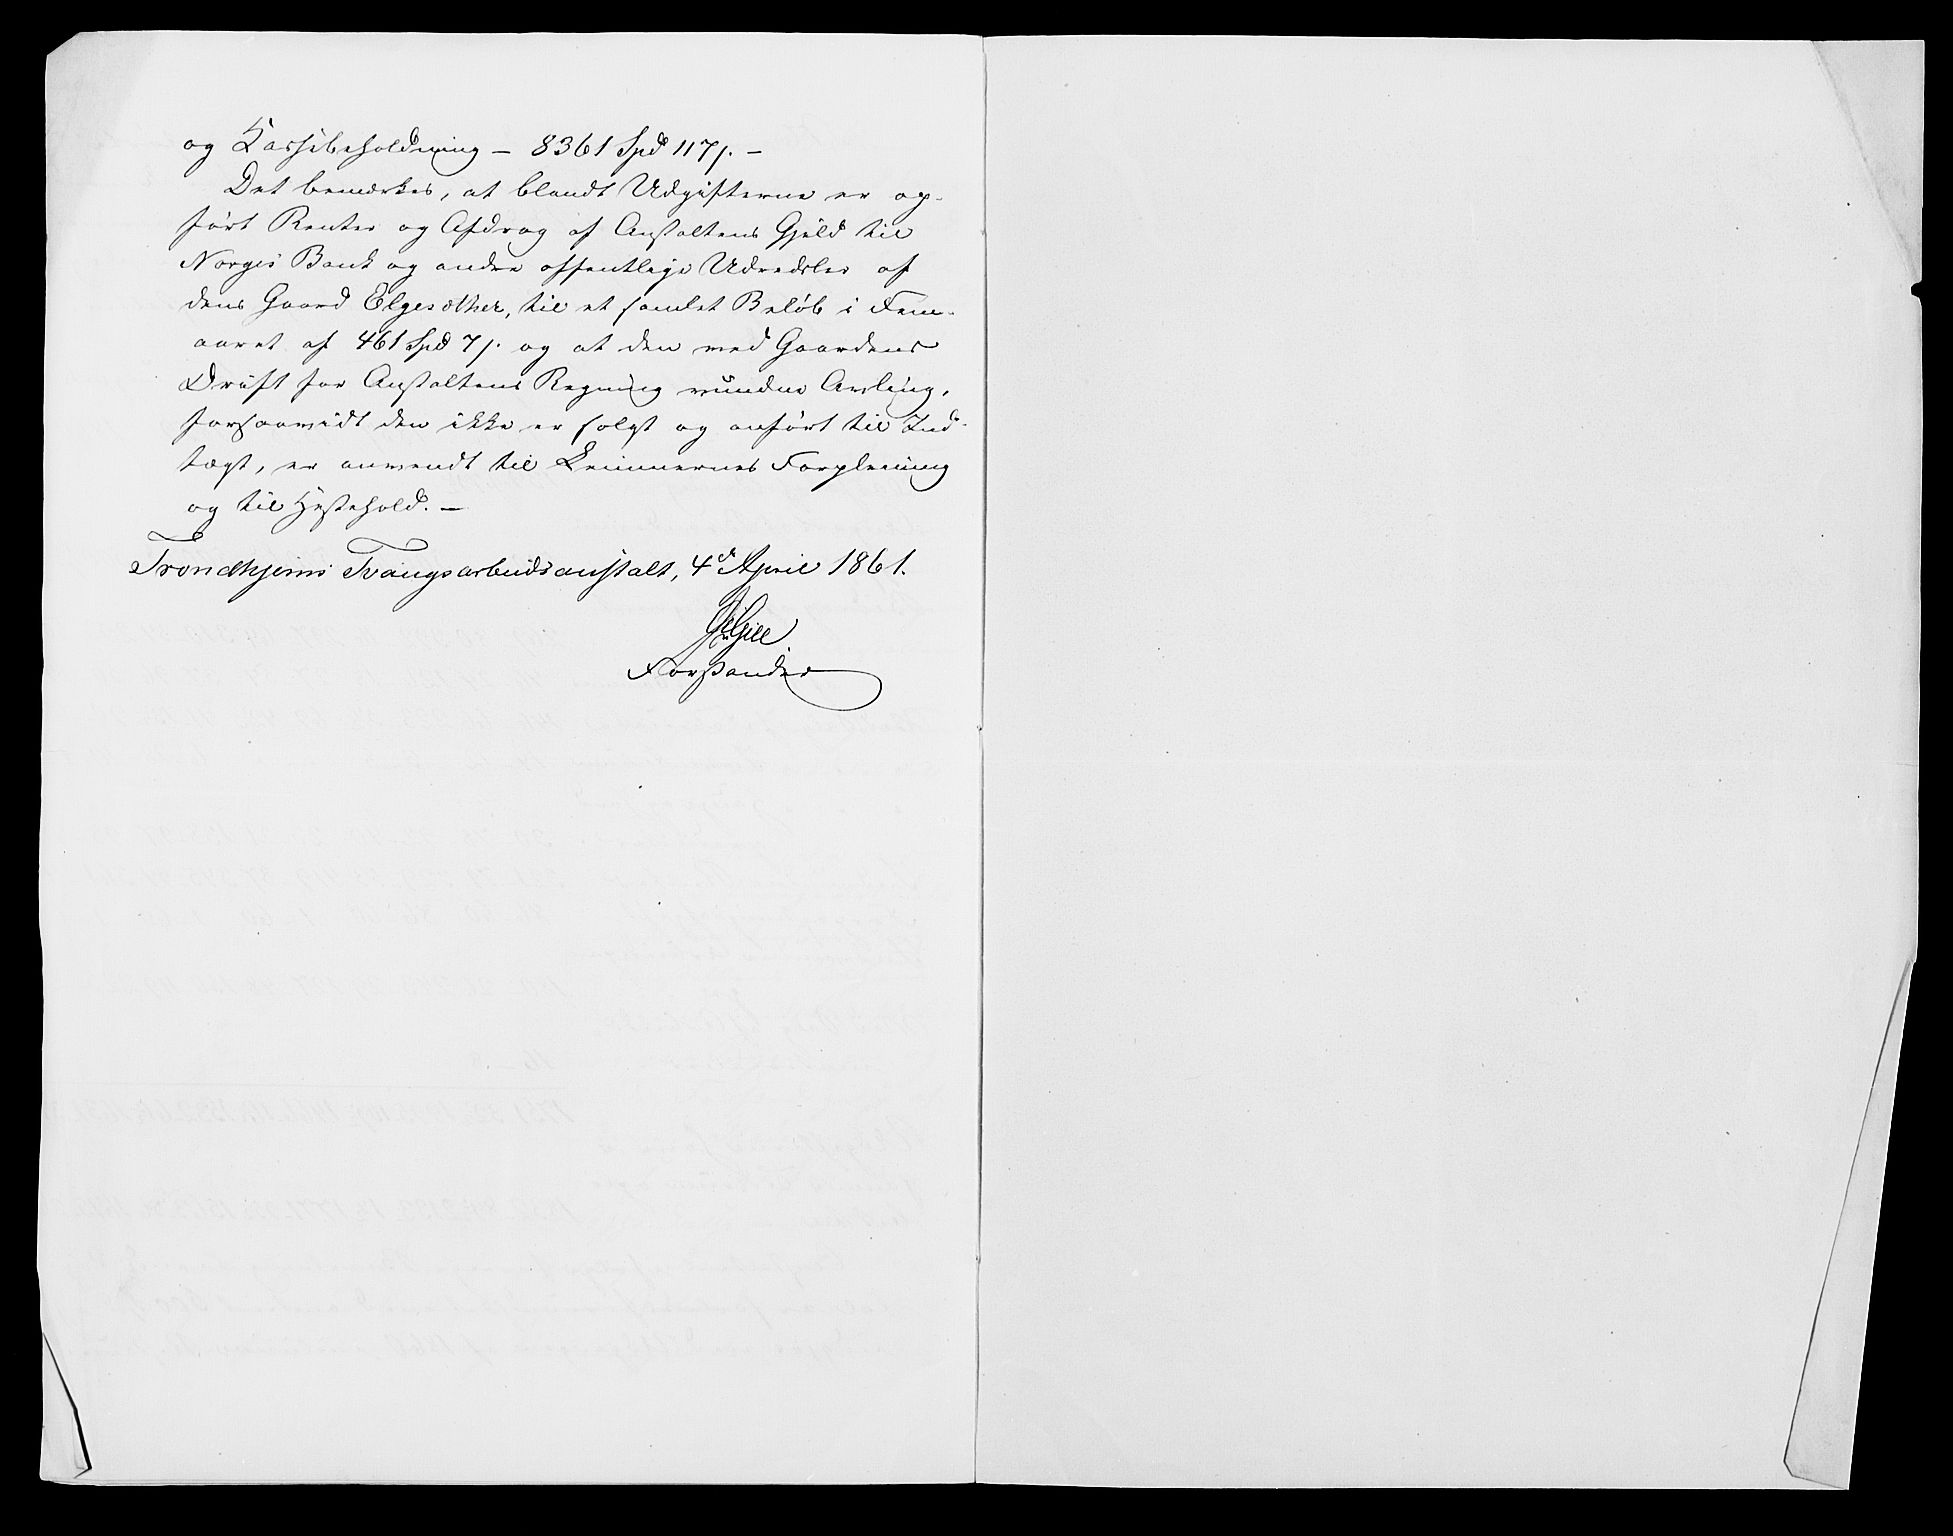 og Kassebeholdning – 8361 Spd 117 s. –
Det bemærkes, at blandt Udgifterne er op-
ført Renter og Afdrag af Anstaltens Gjeld til
Norges Bank og andre offentlige Udredsler af
dens Gaard Elgesæther, til et samlet Beløb i Fem-
aaret af 461 Spd 7 s. og at den ved Gaardens
Drift for Anstaltens Regning vundne Avling,
forsaavidt den ikke er solgt og anført til Ind-
tægt, er anvendt til Lemmernes Forpleining
og til Hestehold. –
Trondhjems Tvangsarbeidsanstalt, 4d April 1861.
Gill
Forstander